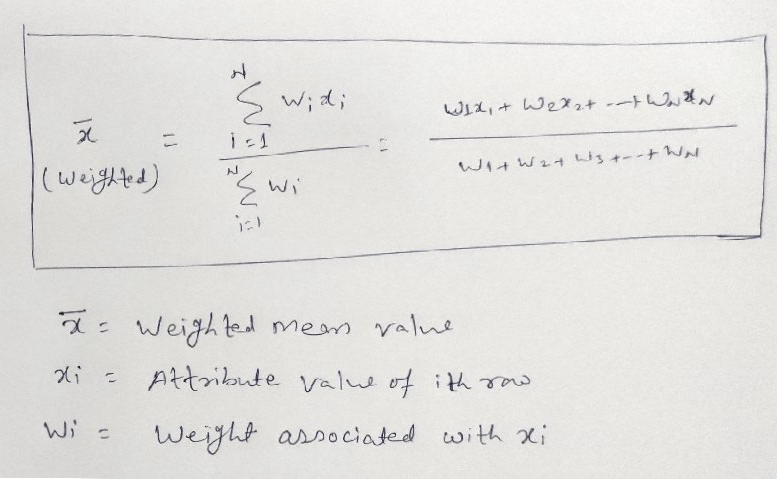 x̄ (weighted) = ∑_{i=1}^{N} wᵢxᵢ / ∑_{i=1}^{N} wᵢ = w₁x₁ + w₂x₂ + --+ w_N x_N / w₁ + w₂ + w₃ + --+ w_N
x̄ = Weighted mean value
xi = Attribute value of ith row
Wi = Weight associated with xi